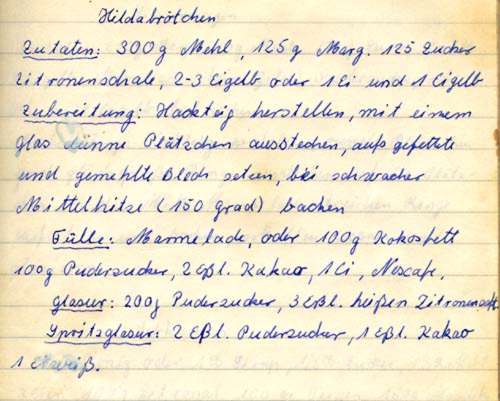 Hildabrötchen
Zutaten: 300g Mehl, 125g Marg. 125 Zucker
Zitronenschale, 2-3 Eigelb oder 1 Ei und 1 Eigelb
Zubereitung: Hackteig herstellen, mit einem
Glas dünne Plätzchen ausstechen, aufs gefettete
und gemehlte Blech setzen, bei schwacher
Mittelhitze (150 grad) backen
Fülle: Marmelade, oder 100g Kokosfett
100g Puderzucker, 2 Eßl. Kakao, 1 Ei, Nescafe.
Glasur: 200g Puderzucker, 3 Eßl. heißen Zitronensaft
Spritzglasur: 2 Eßl. Puderzucker, 1 Eßl. Kakao
1 Eiweiß.